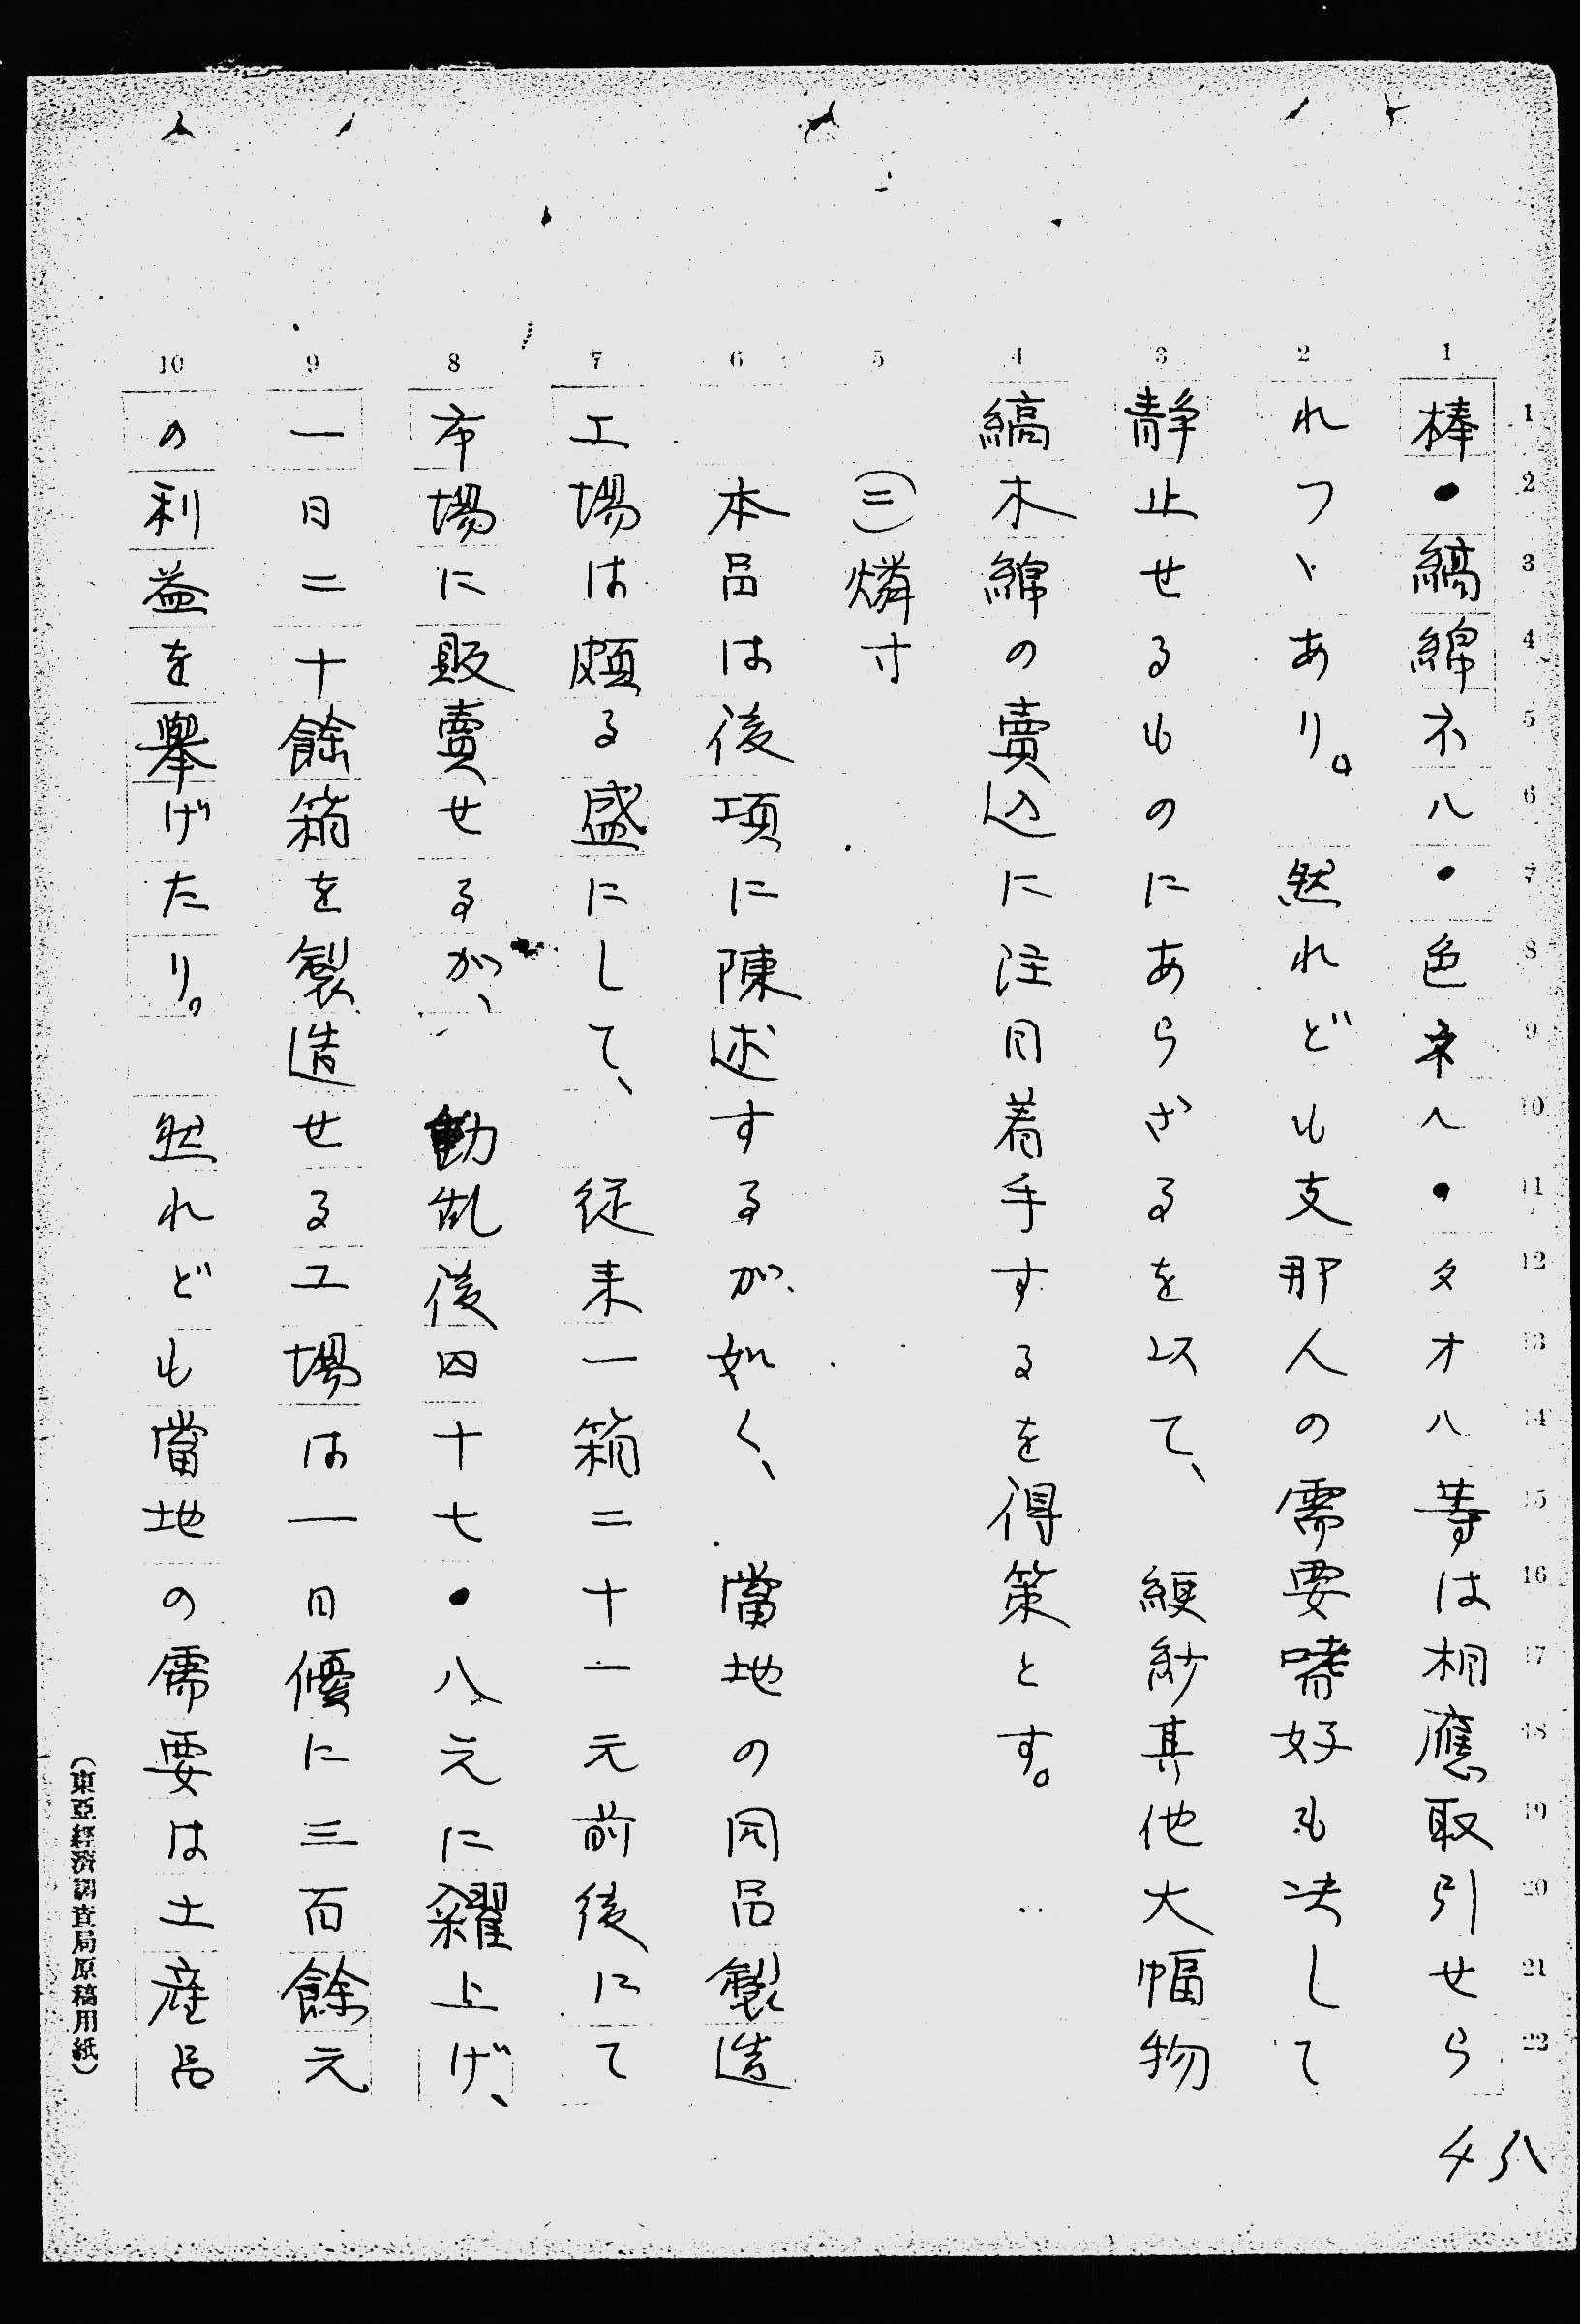 棒・縞綿ネ八・色ネへ・タオ八等は相應取引せら
れつゝあり。然れども支那人の需要嗜好も决して
静止せるものにあらざるを以て、綆紗其他大幅物
縞木綿の賣込に注目着手するを得策とす。
(三)燐寸
本品は後項に陳述するが如く、當地の同品製造
工場は頗る盛にして、従来一箱二十一元前後にて
市場に販賣せるが、動乱後四十七・八元に糶上げ、
一日二十餘箱を製造せる工場は一日優に三百餘元
の利益を擧げたり。然れども當地の需要は土産品
(東亞經濟調査局原稿用紙)
1 2 3 4 5 6 7 8 9 10
1 2 3 4 5 6 7 8 9 10 11 12 13 14 15 16 17 18 19 20 21 22